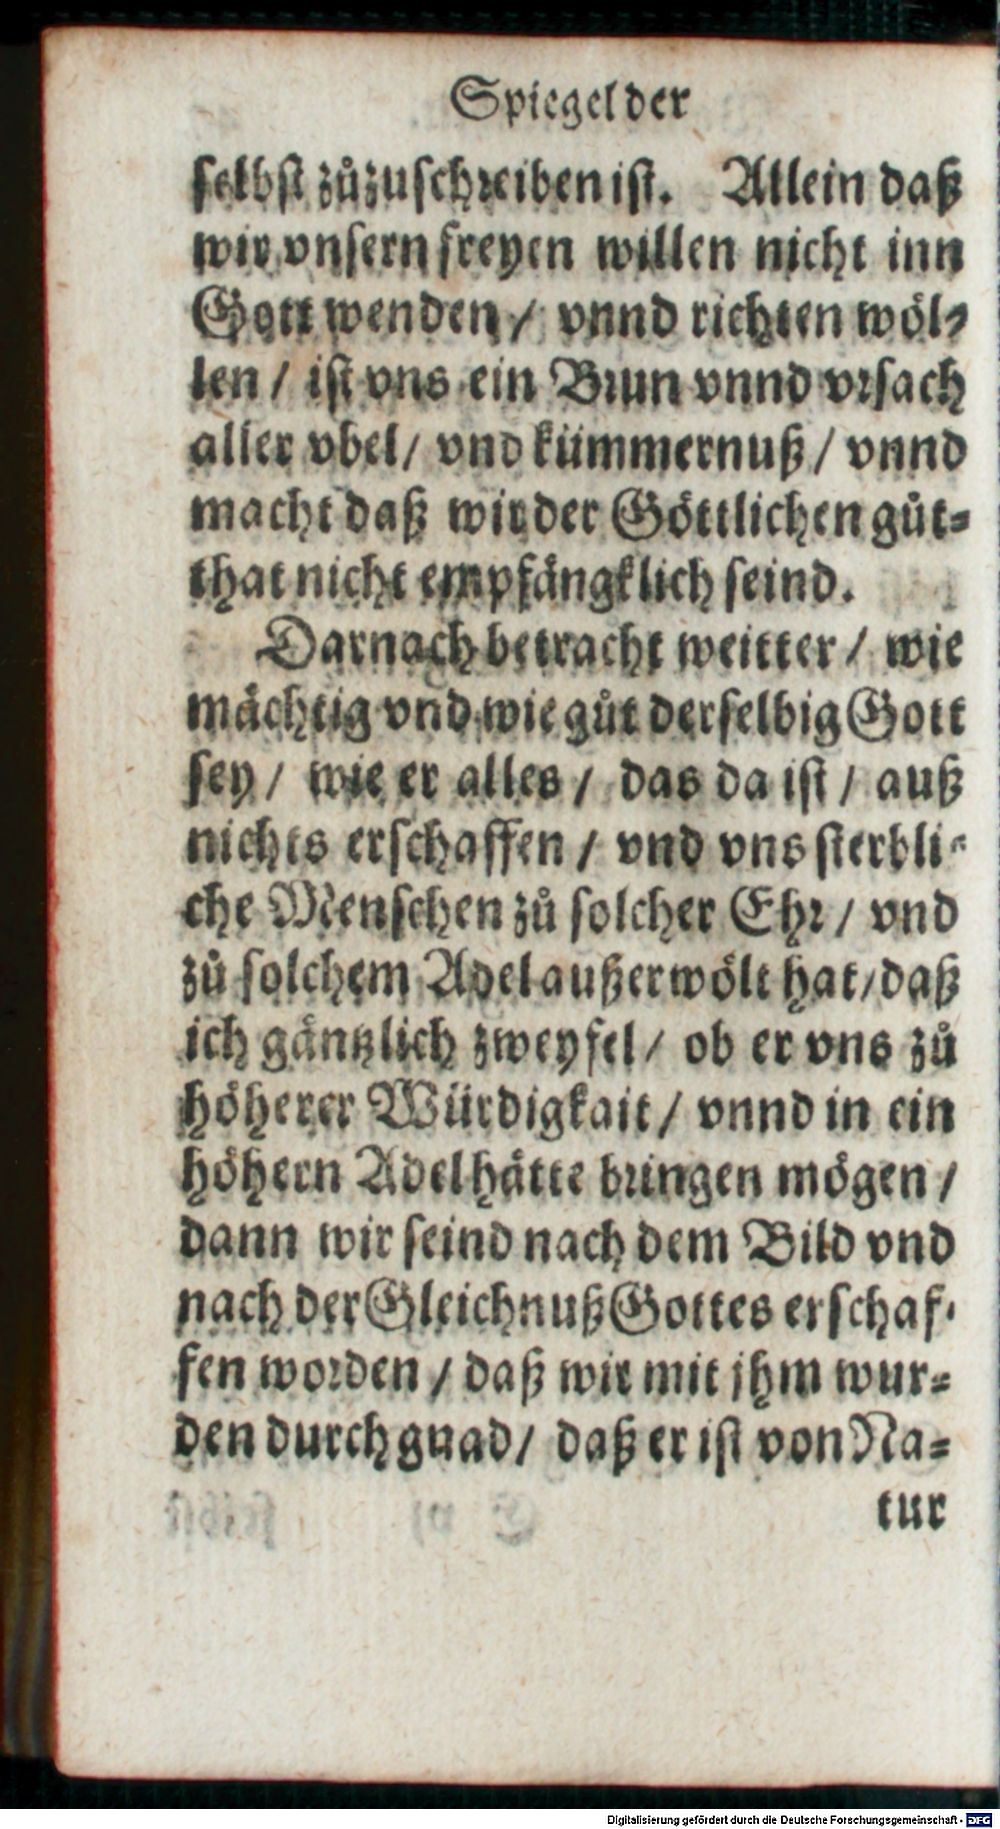 Spiegel der
selbst zůzuschreiben ist. Allein daß
wir vnsern freyen willen nicht inn
Gott wenden / vnnd richten wöl⸗
len / ist vns ein Brun vnnd vrsach
aller vbel / vnd kümmernuß / vnnd
macht daß wir der Göttlichen gůt⸗
that nicht empfängklich seind.
Darnach betracht weitter / wie
mächtig vnd wie gůt derselbig Gott
sey / wie er alles / das da ist / auß
nichts erschaffen / vnd vns sterbli⸗
che Menschen zů solcher Ehr / vnd
zů solchem Adel außerwölt hat / daß
ich gäntzlich zweyfel / ob er vns zů
höherer Würdigkait / vnnd in ein
höhern Adel hätte bringen mögen /
dann wir seind nach dem Bild vnd
nach der Gleichnuß Gottes erschaf⸗
fen worden / daß wir mit jhm wur⸗
den durch gnad / daß er ist von Na⸗
tur
Digitalisierung gefördert durch die Deutsche Forschungsgemeinschaft - DFG